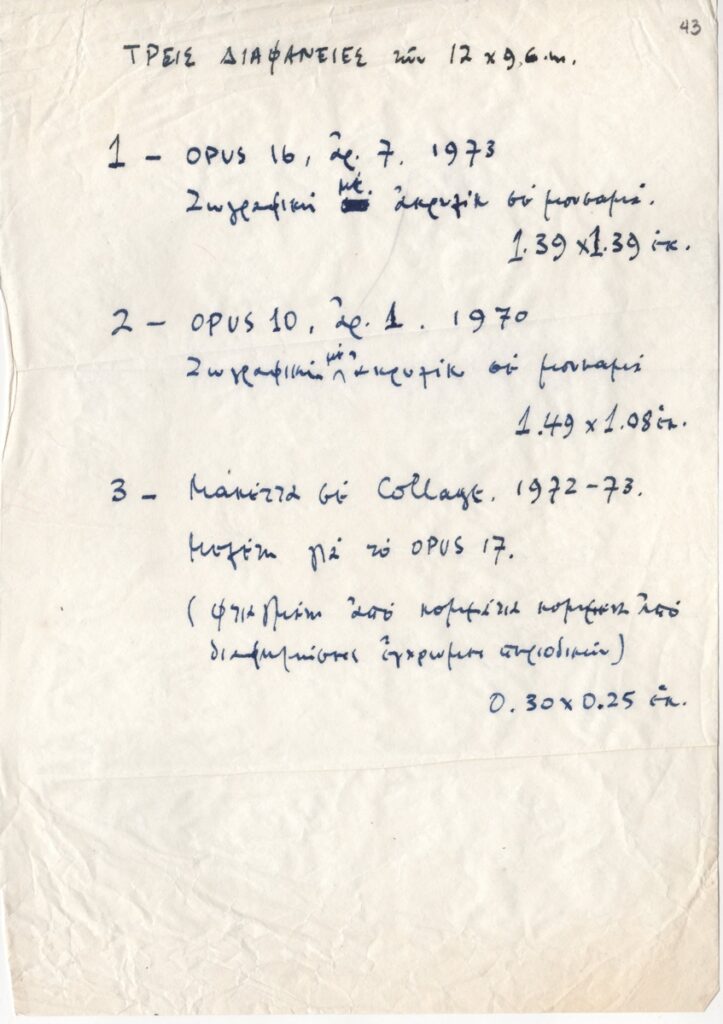 43
ΤΡΕΙΣ ΔΙΑΦΑΝΕΙΕΣ τῶν 12 x 9,6 m.
1 – OPUS 16, ἀρ. 7. 1973
Ζωγραφική μέ ἀκρυλικ σέ μουσαμά.
1.39 x 1.39 ἑκ.
2 – OPUS 10, ἀρ. 1. 1970
Ζωγραφική μέ ἀκρυλικ σέ μουσαμά
1.49 x 1.08 ἑκ.
3 – Μακέττα σέ Collage. 1972-73.
Μελέτη γιά τό OPUS 17.
(φτιαγμένη ἀπό κομμάτια κομμένα ἀπό
διαφημίσεις ἐγχρωμες περιοδικῶν)
0.30 x 0.25 ἑκ.